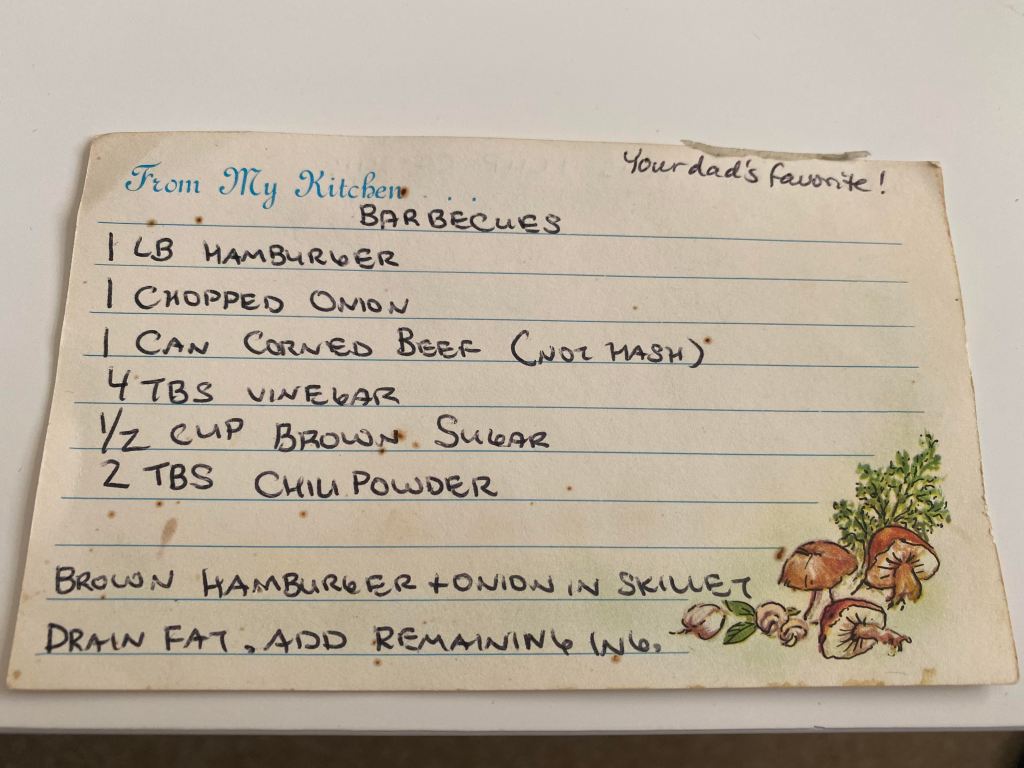 Your dad's favorite!
From My Kitchen....
BARBECUES
1 LB HAMBURGER
1 CHOPPED ONION
1 CAN CORNED BEEF (NOT HASH)
4 TBS VINEGAR
1/2 CUP BROWN SUGAR
2 TBS CHILI POWDER
BROWN HAMBURGER + ONION IN SKILLET
DRAIN FAT. ADD REMAINING ING.